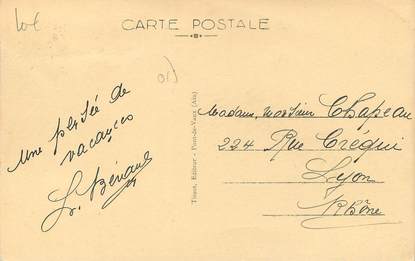 10€
CARTE POSTALE
Une pensée de
vacances
Tissot, Editeur - Pont-de-Vaux (Ain)
Madame, Monsieur Chapeau
224 Rue Créqui
Lyon
Rhône